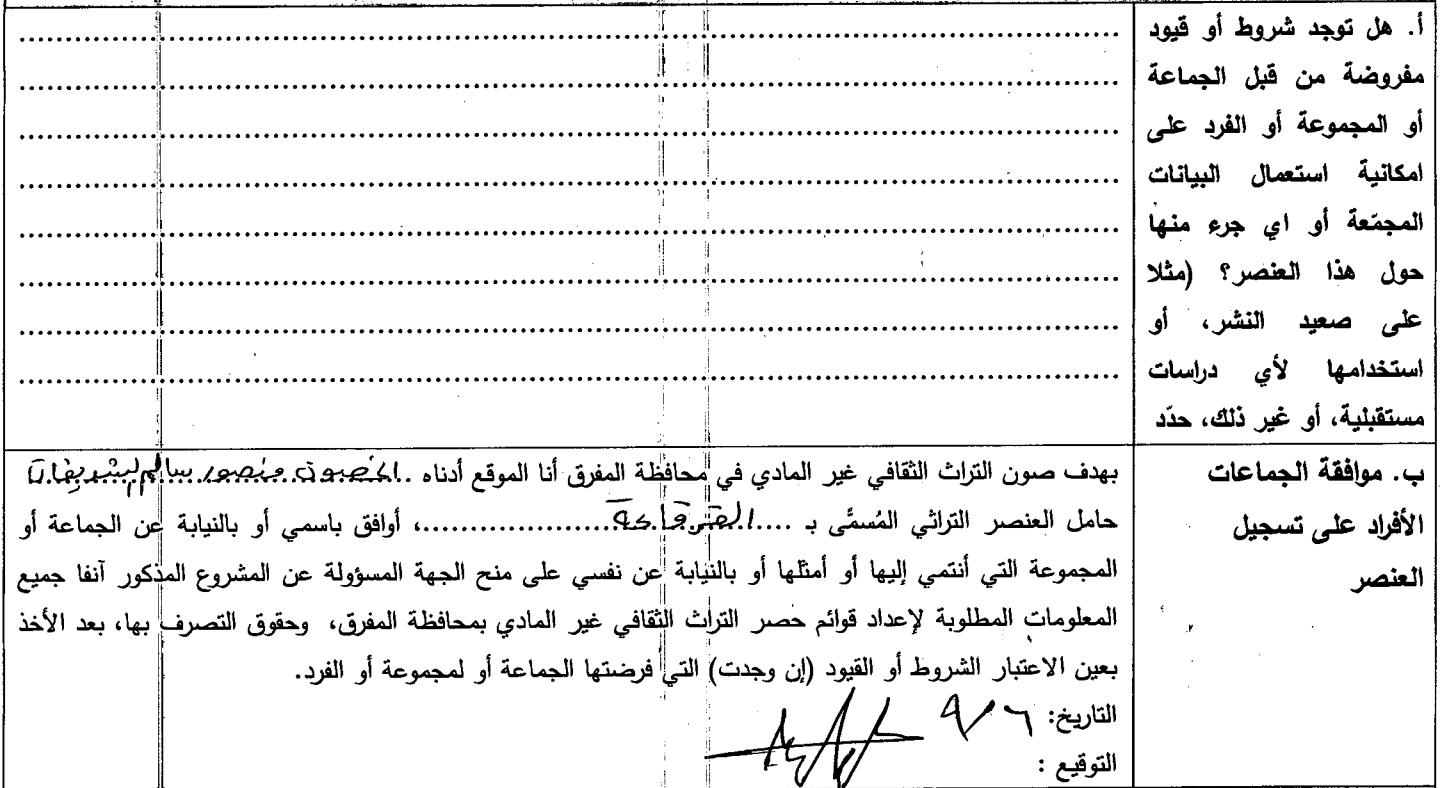 أ. هل توجد شروط أو قيود
مفروضة من قبل الجماعة
أو المجموعة أو الفرد على
امكانية استعمال البيانات
المجمّعة أو اي جرء منها
حول هذا العنصر؟ (مثلا
على صعيد النشر، أو
استخدامها لأي دراسات
مستقبلية، أو غير ذلك، حدّد
ب. موافقة الجماعات
الأفراد على تسجيل
العنصر
بهدف صون التراث الثقافي غير المادي في محافظة المفرق أنا الموقع أدناه منصور سالم
حامل العنصر التراثي المُسمَّى بـ ....................، أوافق باسمي أو بالنيابة عن الجماعة أو
المجموعة التي أنتمي إليها أو أمثلها أو بالنيابة عن نفسي على منح الجهة المسؤولة عن المشروع المذكور آنفا جميع
المعلومات المطلوبة لإعداد قوائم حصر التراث الثقافي غير المادي بمحافظة المفرق، وحقوق التصرف بها، بعد الأخذ
بعين الاعتبار الشروط أو القيود (إن وجدت) التي فرضتها الجماعة أو لمجموعة أو الفرد.
التاريخ: ٩/٦
التوقيع :